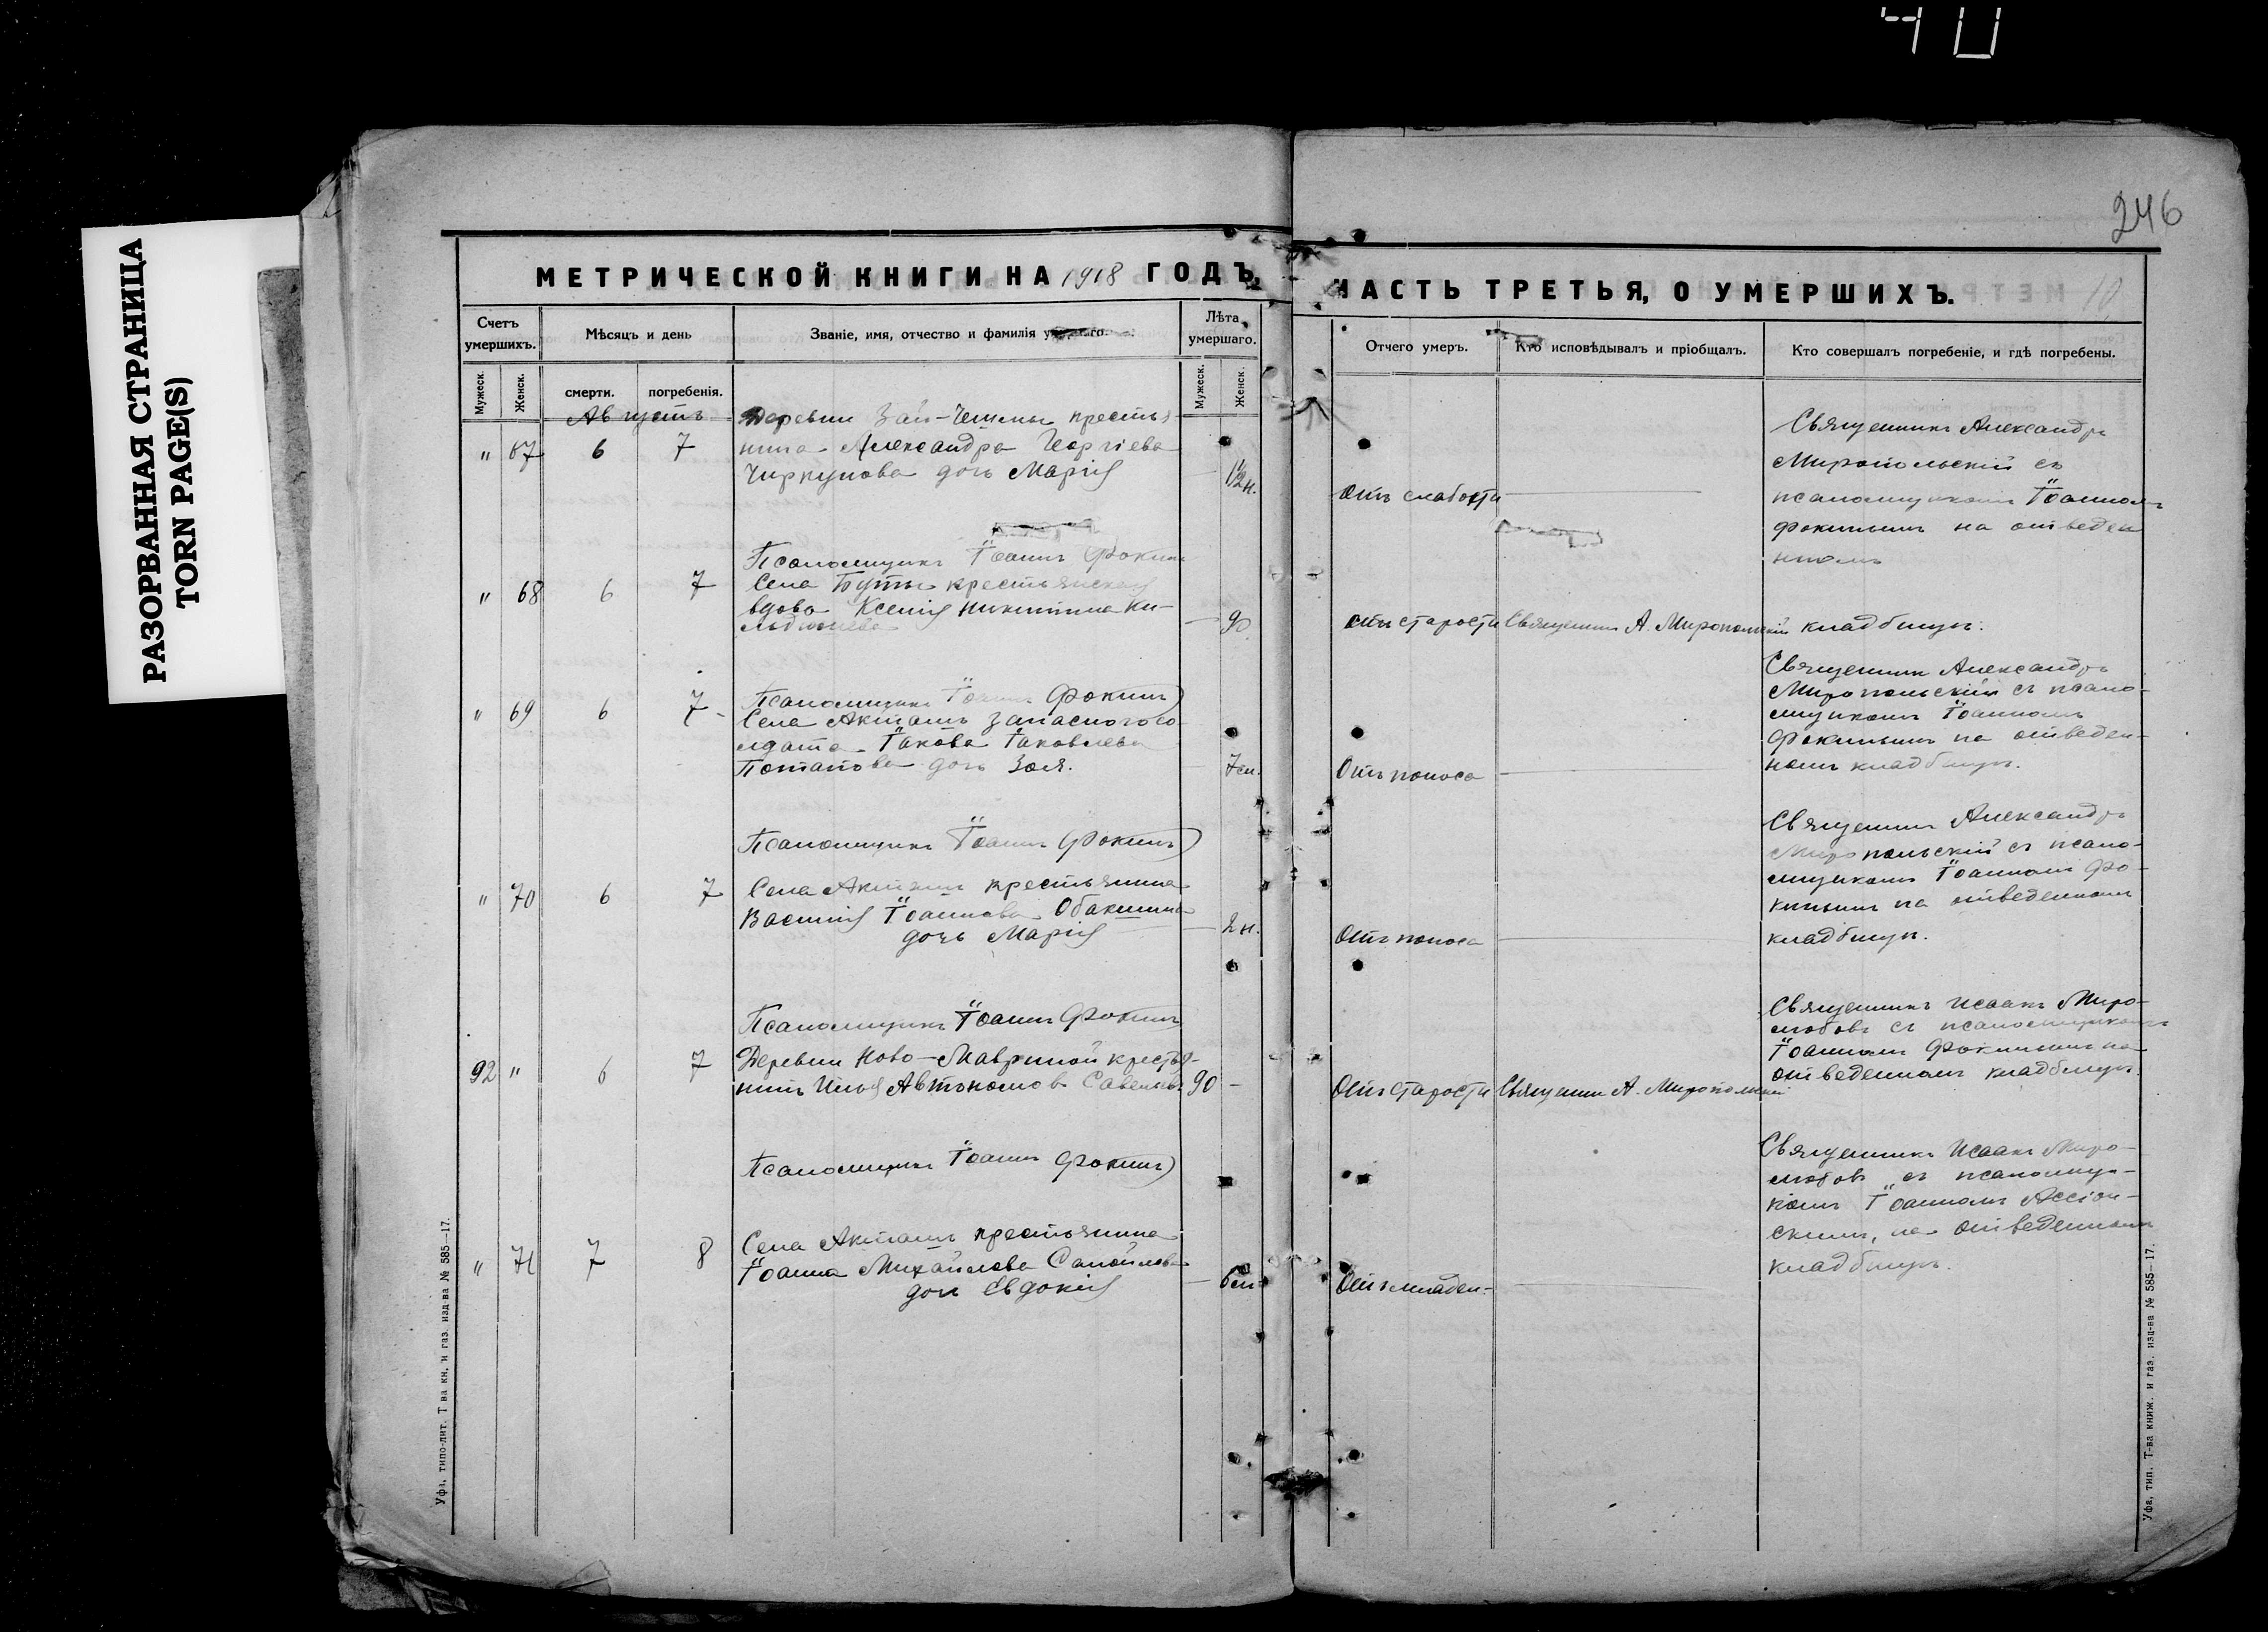 40
РАЗОРВАННАЯ СТРАНИЦА
TORN PAGE(S)
246
10
МЕТРИЧЕСКОЙ КНИГИ НА 1918 ГОДЪ,
Счетъ умершихъ.
Мѣсяцъ и день
Званіе, имя, отчество и фамилія
Лѣта умершаго.
Мужеск.
Женск.
смерти.
погребенія.
Мужеск.
Женск.
Августъ
" 67 6 7
Деревни Зай-Чешмы крестья-
нина Александра Георгіева
Чиркунова дочь Марія
Псаломщикъ Іоаннъ Фокинъ
" 68 6 7
Села Буты крестьянская
вдова Ксенія Никитина
90
Псаломщикъ Іоаннъ Фокинъ
" 69 6 7
Села Акташъ запасного со-
лдата Іакова Іаковлева
Потапова дочь Зоя.
7 м.
Псаломщикъ Іоаннъ Фокинъ
" 70 6 7
Села Акташъ крестьянина
Василія Іоаннова Обакшина
дочь Марія
2 н.
Псаломщикъ Іоаннъ Фокинъ
92 " 6 7
Деревни Ново-Мавриной крестья-
нинъ Илья Автономовъ Савельевъ
90 -
Псаломщикъ Іоаннъ Фокинъ
" 71 7 8
Села Акташъ крестьянина
Іоанна Михайлова Самойлова
дочь Евдокія
6 м.
Уфа, типо-лит. Т ва кн. и газ. изд-ва № 585—17.
ЧАСТЬ ТРЕТЬЯ, О УМЕРШИХЪ.
Отчего умеръ.
Кто исповѣдывалъ и пріобщалъ.
Кто совершалъ погребеніе, и гдѣ погребены.
Отъ слабости
Священникъ Александръ
Миропольскій съ
псаломщикомъ Іоанномъ
Фокинымъ на отведен
номъ
Отъ старости
Священникъ А. Миропольскій
кладбищѣ.
Отъ поноса
Священникъ Александръ
Миропольскій съ псало-
мщикомъ Іоанномъ
Фокинымъ на отведен-
номъ кладбищѣ.
Отъ поноса
Священникъ Александръ
Миропольскій съ псало-
мщикомъ Іоанномъ Фо-
кинымъ на отведенномъ
кладбищѣ.
Отъ старости
Священникъ А. Миропольскій
Священникъ Исаакъ Миро-
любовъ съ псаломщикомъ
Іоанномъ Фокинымъ на
отведенномъ кладбищѣ.
Отъ младен.
Священникъ Исаакъ Миро-
любовъ съ псаломщи-
комъ Іоанномъ Ассіон-
скимъ, на отведенномъ
кладбищѣ.
Уфа, тип. Т-ва книж. и газ. изд-ва № 585—17.